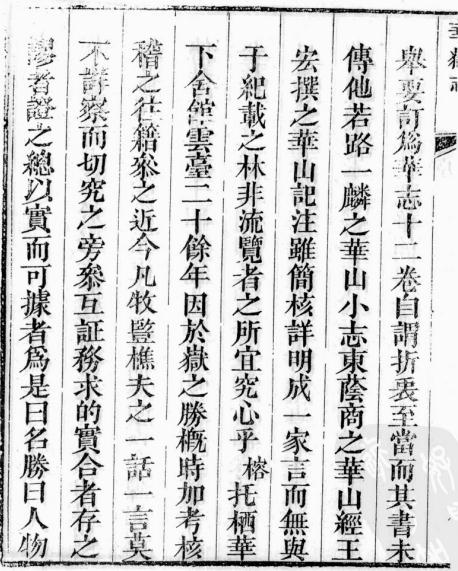 舉要訂爲華志十二卷自謂折衷至當而其書未
傳他若路一麟之華山小志東蔭商之華山經王
宏撰之華山記注雖簡核詳明成一家言而無與
于紀載之林非流覽者之所宜究心乎榕托栖華
下舍館雲臺二十餘年因於嶽之勝概時加考核
稽之往籍參之近今凡牧豎樵夫之一話一言莫
不詳察而切究之旁參互証務求的實合者存之
謬者證之總以實而可據者爲是曰名勝曰人物